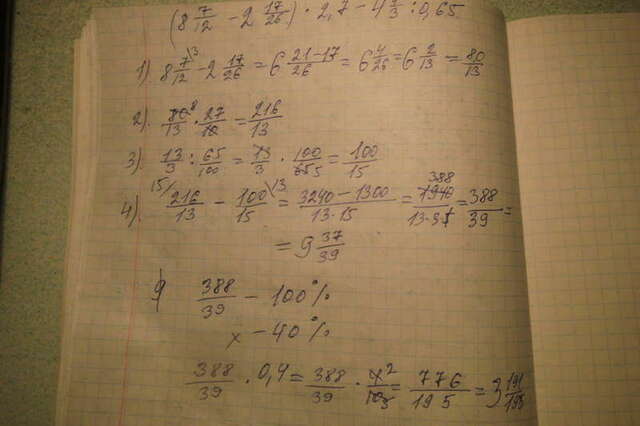 (8 7/12 - 2 17/26) · 2,7 - 4 1/3 : 0,65
1). 8 7/12 \3 - 2 17/26 = 6 21-17/26 = 6 4/26 = 6 2/13 = 80/13
2). 80 8/13 · 27/10 = 216/13
3) 13/3 : 65/100 = 13/3 · 100/65 5 = 100/15
4) 15/ 216/13 - 100/15 \13 = 3240-1300/13·15 = 1940 388/13·3 = 388/39 =
= 9 37/39
388/39 - 100%
x - 40%
388/39 · 0,4 = 388/39 · 4 2/10 5 = 776/195 = 3 191/195